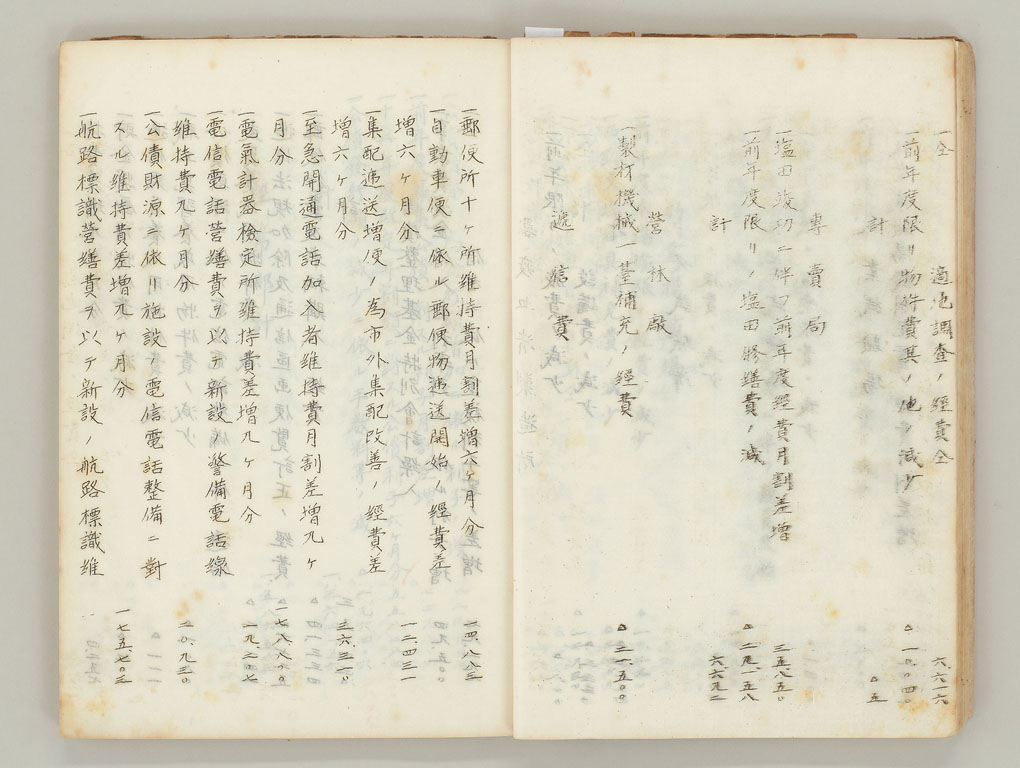 一仝　適地調査ノ經費仝　六、六一六
一前年度限リ物件費其ノ他ノ減少　△一〇、〇四〇
計　△五
專賣局
一塩田竣功ニ伴フ前年度經費月割差增　三五、八五〇
一前年度限リノ塩田修繕費ノ減　△二九、一五八
計　六六九二
營林廠
一製材機械一基補充ノ經費　△三一、五〇〇
遞信費
一郵便所十ヶ所維持費月割差增六ヶ月分　一四、八八三
一自動車便ニ依ル郵便物遞送開始ノ經費差
增六ヶ月分　一二、四三一
一集配遞送增便ノ為市外集配改善ノ經費差
增六ヶ月分　三六、三一〇
一至急開通電話加入者維持費月割差增九ヶ
月分　一七八、八八〇
一電氣計器檢定所維持費差增九ヶ月分　一九、二〇七
一電信電話營繕費ヲ以テ新設ノ警備電話線
維持費九ヶ月分　二〇、九三〇
一公債財源ニ依リ施設ノ電信電話整備ニ對
スル維持費差增九ヶ月分　一七五、七〇三
一航路標識營繕費ヲ以テ新設ノ航路標識維